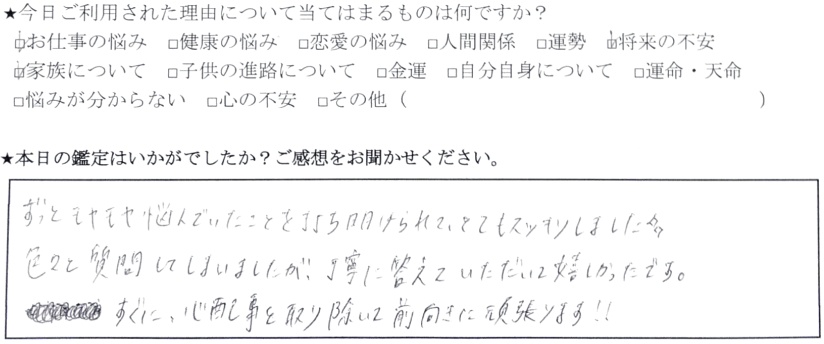 ★今日ご利用された理由について当てはまるものは何ですか？
☑お仕事の悩み □健康の悩み □恋愛の悩み □人間関係 □運勢 ☑将来の不安
☑家族について □子供の進路について □金運 □自分自身について □運命・天命
□悩みが分からない □心の不安 □その他（ ）
★本日の鑑定はいかがでしたか？ご感想をお聞かせください。
ずっとモヤモヤ悩んでいたことを打ち明けられて、とてもスッキリしました
色々と質問してしまいましたが、丁寧に答えていただいて嬉しかったです。
すぐに、心配事を取り除いて前向きに頑張ります!!